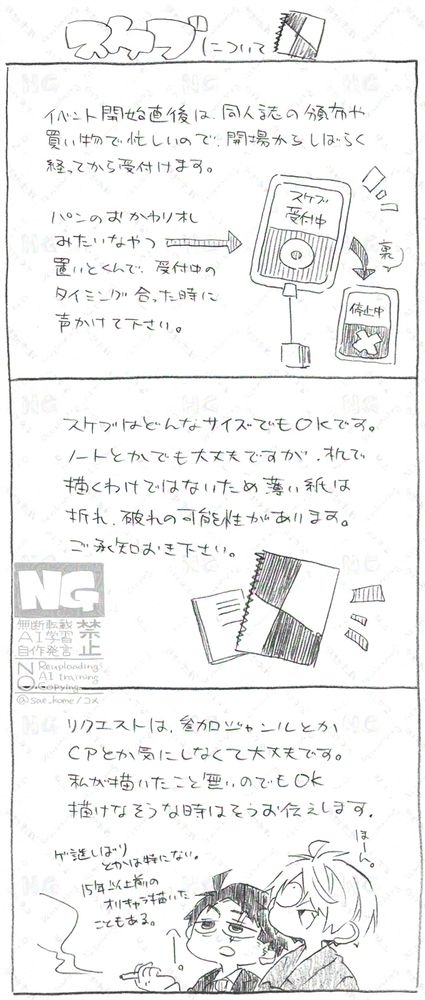 スケブについて
イベント開始直後は、同人誌の頒布や
買い物で忙しいので、開場からしばらく
経ってから受付けます。
スケブ
受付中
パンのおかわりオレ
みたいなやつ
置いとくんで、受付中の
タイミング合った時に
声かけて下さい。
裏
停止中
スケブはどんなサイズでもOKです。
ノートとかでも大丈夫ですが、机で
描くわけではないため薄い紙は
折れ、破れの可能性があります。
ご承知おき下さい。
NG
無断転載
AI学習
自作発言
禁止
NO
Reuploading
AI training
Copying
@sae_home/コメ
リクエストは、参加ジャンルとか
CPとか気にしなくて大丈夫です。
私が描いたこと無いのでもOK
描けなそうな時はそうお伝えします。
ゲ謎しばり
とかは特にない。
15年以上前の
オリキャラ描いた
こともある。
ほーん。